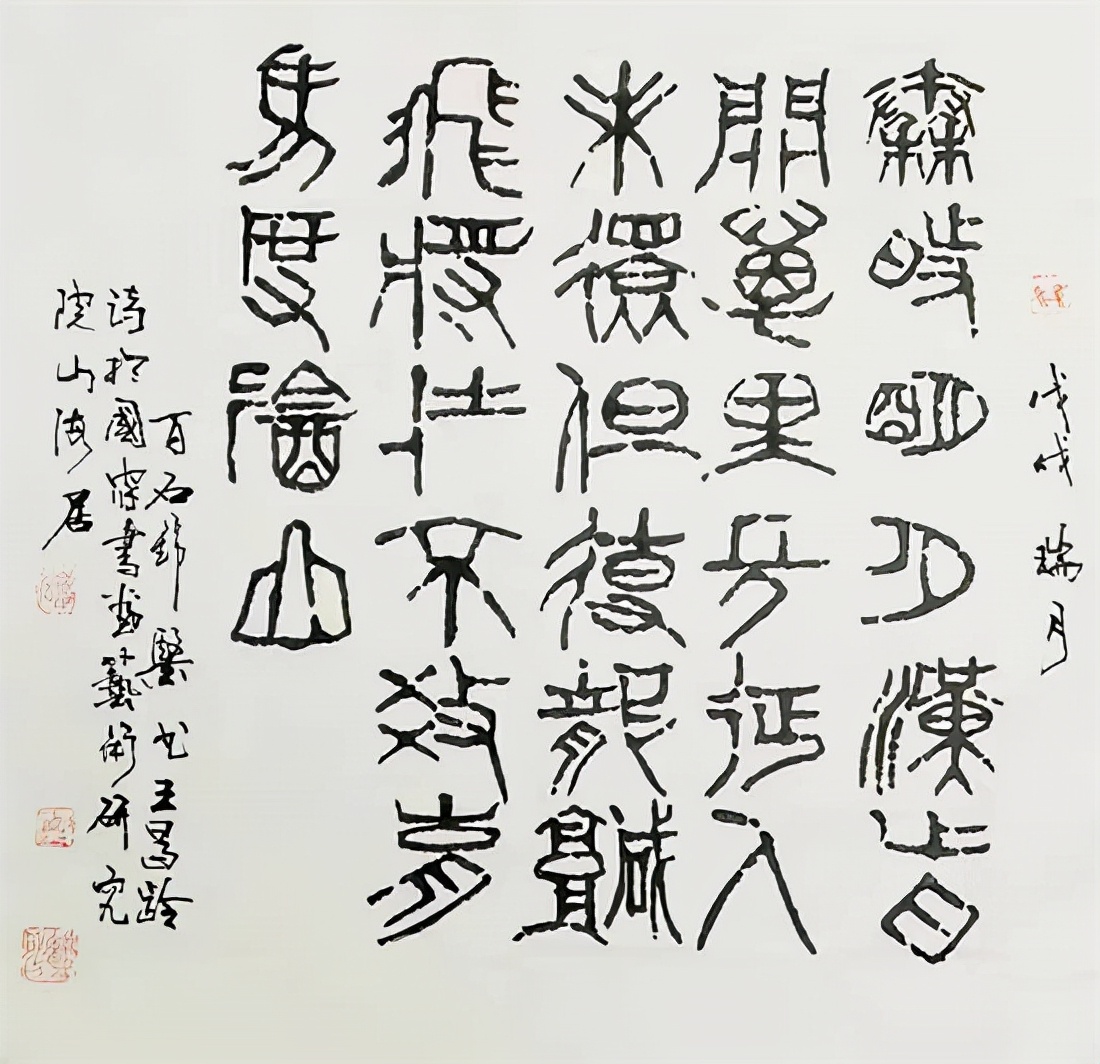 戊戌 瑞月
秦時明月漢時
關萬里長征人
未還但使龍城
飛將在不教胡
馬度陰山
百石軒 书王昌齡
诗於國家書畫藝術研究
院山海居